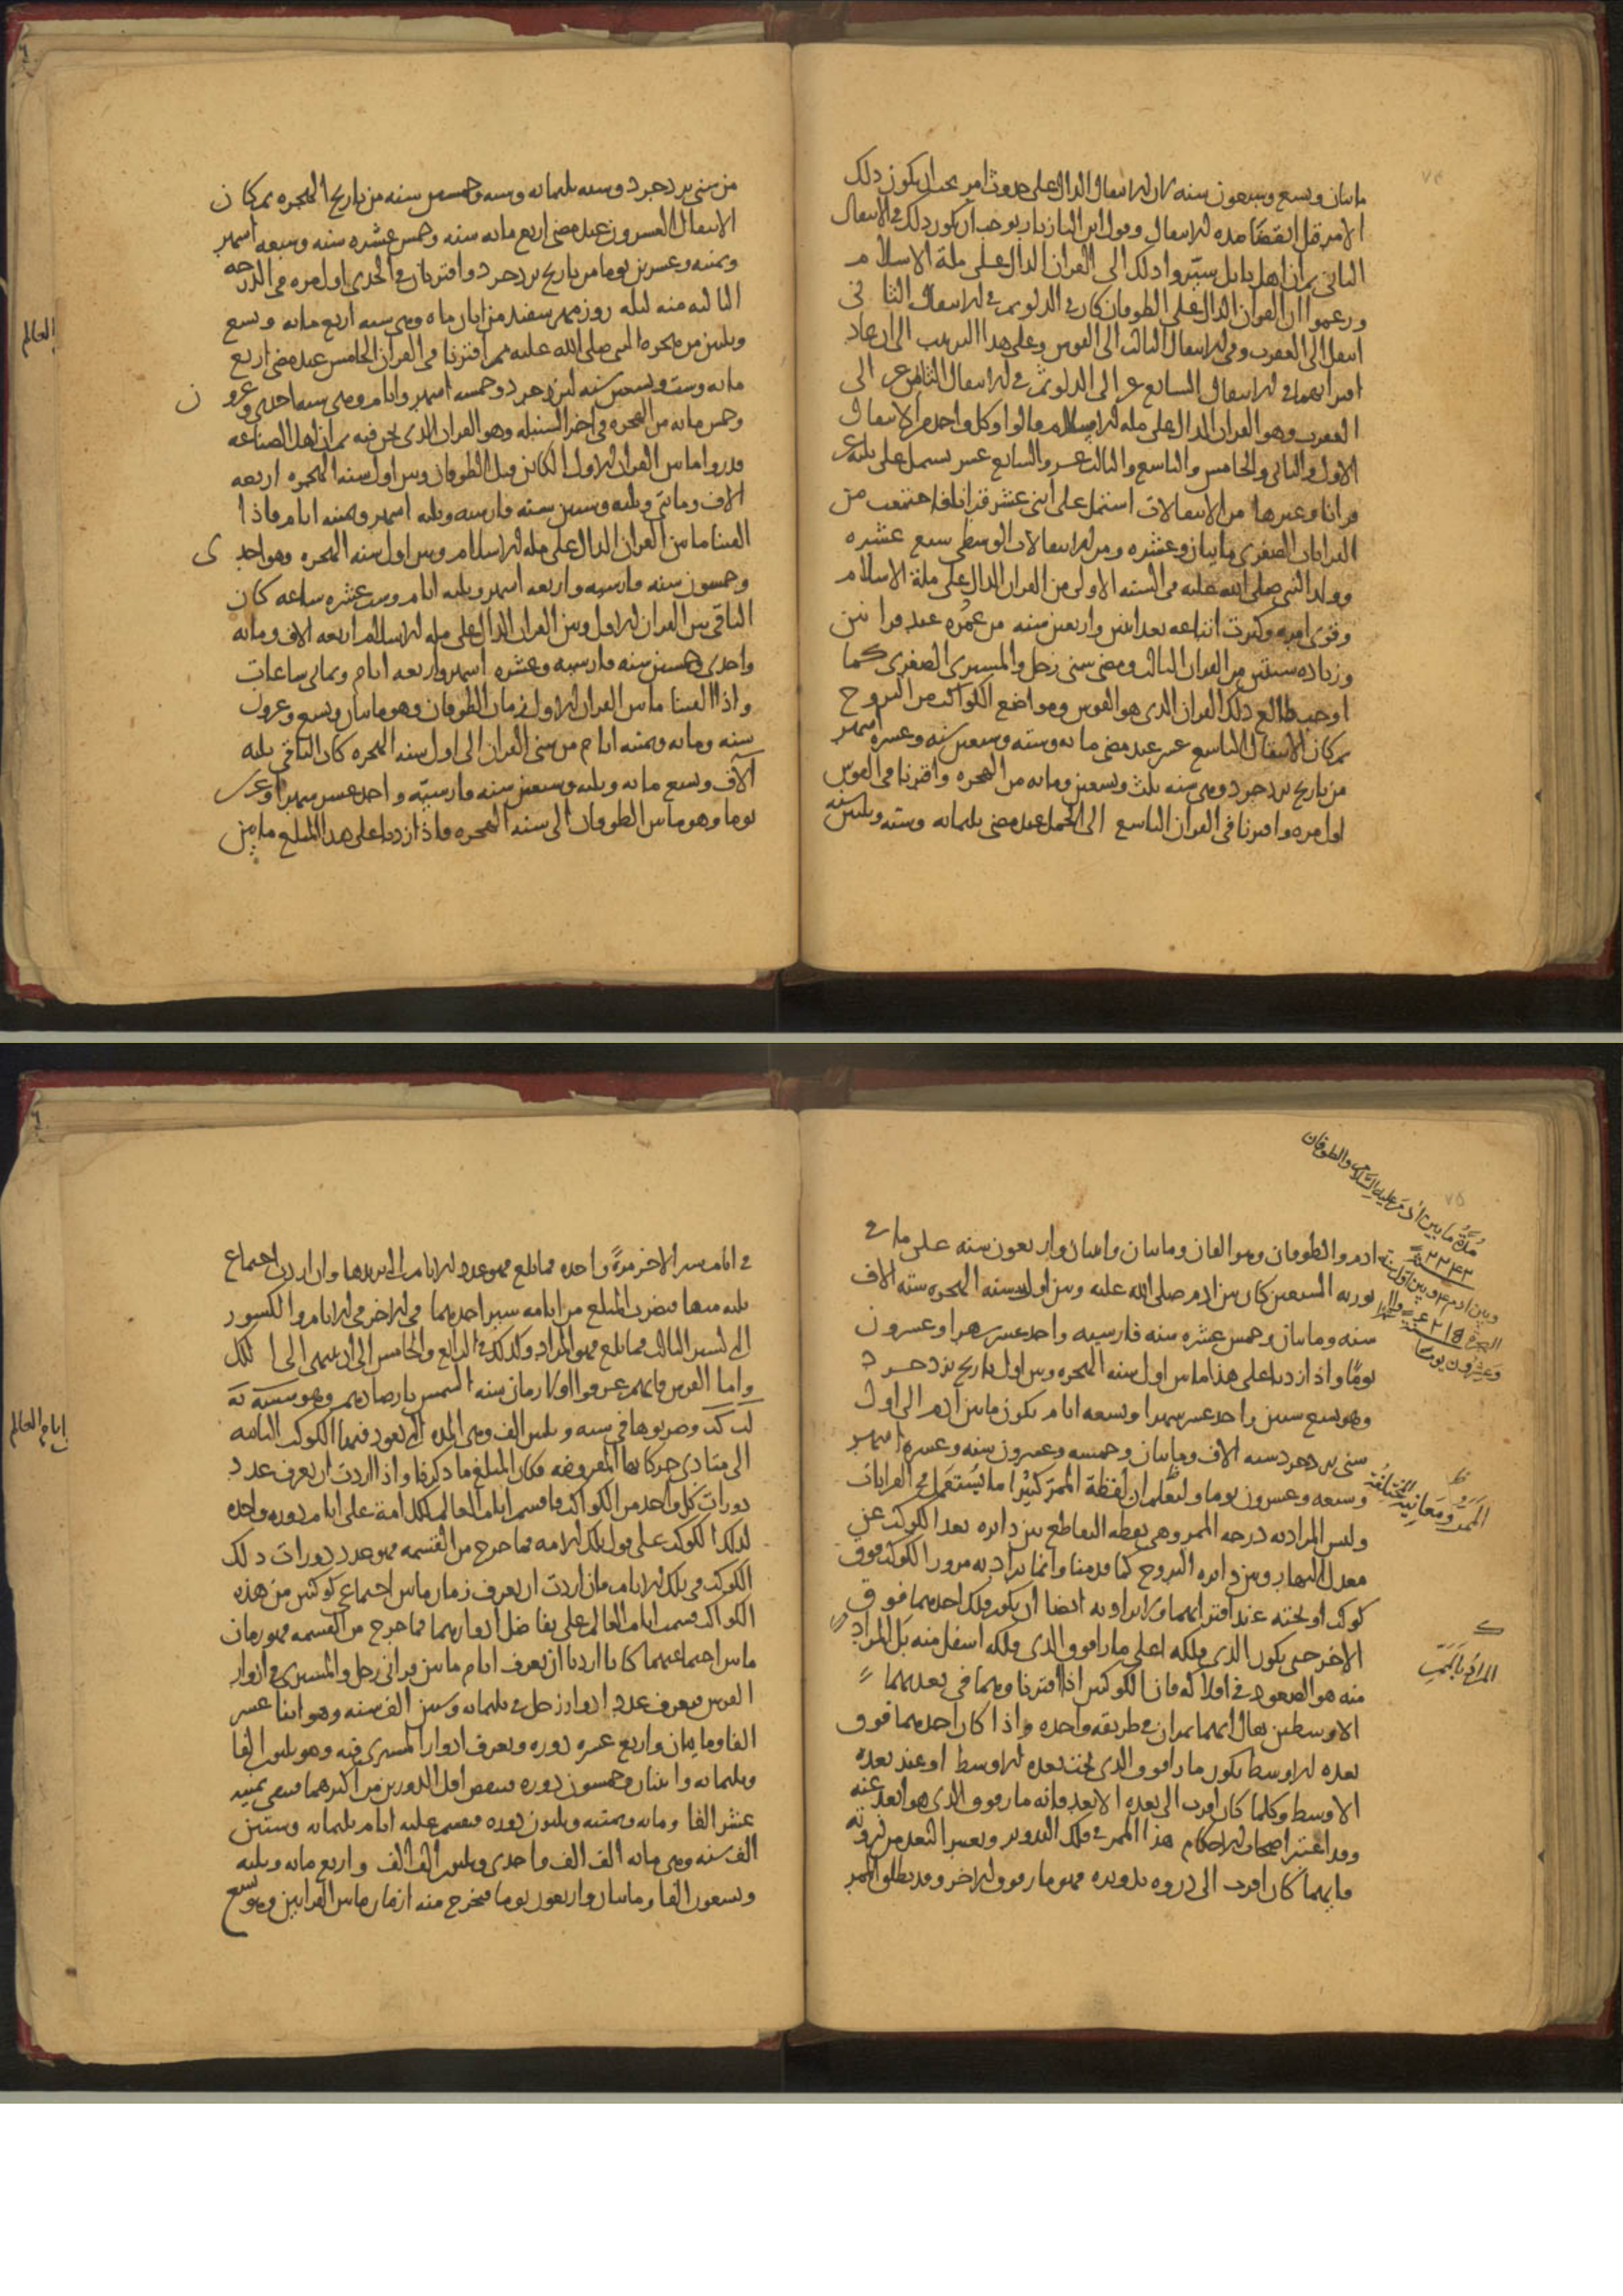 ماىتان وىسع وسبعون سنه كان الانتقال الدال على حدوث امر يجب ان يكون ذلك
الامر قبل انقضا مده الانتقال وقول ابن البازيار يوجب ان يكون ذلك في الانتقال
الثاني ثم ان اهل بابل سيروا ذلك الى القران الدال على ملة الاسلام
وزعموا ان القران الدال على الطوفان كان في الدلو ثم في الانتقال الثاني
انتقل الى العقرب وفي الانتقال الثالث الى القوس وعلى هذا الترتيب الى ان عاد
اقترانهما في الانتقال السابع عشر الى الدلو ثم في الانتقال الثامن عشر الى
العقرب وهو القران الدال على مله الاسلام قالوا وكل واحد من الانتقال
الاول والثاني والخامس والتاسع والثالث عشر والسابع عشر يشتمل على ثلثه عشر
قرانا وغيرها من الانتقالات اشتمل على اثنى عشر قرانا فاجتمعت من
القرانات الصغرى مايتان وعشره ومن الانتقالات الوسطى سبع عشره
وولد النبي صلى الله عليه في السنه الاولى من القران الدال على ملة الاسلام
وقوى امره وكثرت اتباعه بعد اثنين واربعين سنه من عمره عند قرانين
وزياده سنتين من القران الثالث ومضى سنى زحل والمشترى الصغرى كما
اوجب طالع ذلك القران الذى هو القوس ومواضع الكواكب من البروج
ثم كان الانتقال التاسع عشر عند مضى مايه وسته وسبعين سنه وعشره اشهر
من تاريخ يزدجرد وهى سنه ثلث وتسعين ومايه من الهجره واقترنا في القوس
اول مره واقترنا في القران التاسع الى الحمل عند مضى ثلثمايه وسته وثلثين سنه
من سنى يزدجرد وسنه ثلثمايه وسته وخمسين سنه من تاريخ الهجره ثم كان
الانتقال العشرون عند مضى اربع مايه سنه وخمس عشره سنه وسبعه اشهر
وثمنيه وعشرين يوما من تاريخ يزدجرد واقترنا في الجدى اول مره في الدرجه
الثالثه منه ليله روز مهر سفند من ابان ماه وهى سنه اربع مايه وتسع
وثلثين من هجره النبى صلى الله عليه ثم اقترنا في القران الخامس عند مضى اربع
مايه وست وتسعين سنه ليزدجرد وخمسه اشهر وايام وهى سنه احدى وعشرون
وخمس مايه من الهجره في اخر السنبله وهو القران الذى نحن فيه ثم ان اهل الصناعه
قدروا ما بين القران الاول الكائن قبل الطوفان وبين اول سنه الهجره اربعه
الاف ومايتي وثلثه وستين سنه فارسيه وثلثه اشهر وثمنيه ايام فاذا
القينا ما بين القران الدال على مله الاسلام وبين اول سنه الهجره وهو احدى
وخمسون سنه فارسيه واربعه اشهر وثلثه ايام وست عشره ساعه كان
الباقى بين القران الاول وبين القران الدال على مله الاسلام اربعه الاف ومايه
واحدى وخمسين سنه فارسيه وعشره اشهر واربعه ايام وثمانى ساعات
واذا القينا ما بين القران الاول وزمان الطوفان وهو مايتان وتسع وعشرون
سنه ومايه وثمنيه ايام من سنى القران الى اول سنه الهجره كان الباقى ثلثه
آلاف وسبع مايه وثلثه وسبعين سنه فارسيّه واحد عشر شهرا وعشرين
يوما وهو ما بين الطوفان الى سنه الهجره فاذا زدنا على هذا المبلغ ما بين
العالم
ادم والطوفان وهو الفان ومايتان واثنان واربعون سنه على ما في
توريه السبعين كان بين ادم صلى الله عليه وبين اول سنه الهجره سته الاف
سنه ومايتان وخمس عشره سنه فارسيه واحد عشر شهرا وعشرون
يومًا واذا زدنا على هذا ما بين اول سنه الهجره وبين اول تاريخ يزدجرد
وهو تسع سنين واحد عشر شهرا وتسعه ايام يكون ما بين ادم الى اول
سنى يزدجرد سته الاف ومايتان وخمسه وعشرون سنه وعشره اشهر
وتسعه وعشرون يوما ولتعلم ان لفظة الممر كثيرًا ما يستعمل في القرانات
وليس المراد به درجه الممر وهى نقطه التقاطع بين دايره بعد الكوكب عن
معدل النهار وبين دايره البروج كما قدمنا وانما يراد به مرور الكوكب فوق
كوكب او تحته عند اقترانهما ولا يراد به ايضا ان يكون فلك احدهما فوق
الاخر حتى يكون الذى فلكه اعلى مارا فوق الذى فلكه اسفل منه بل المراد
منه هو الصعود في افلاكه فان الكوكبين اذا اقترنا وهما في بعديهما
الاوسطين يقال انهما يمران في طريقه واحده واذا كان احدهما فوق
بعده الاوسط يكون مارا فوق الذى تحت بعده الاوسط او عند بعده
الاوسط وكلما كان اقرب الى بعده الابعد فانه مار فوق الذى هو ابعد عنه
وقد اعتبر اصحاب الاحكام هذا الممر في فلك التدوير وبعتبر البعد من ذروته
فايهما كان اقرب الى ذروه تدويره فهو مار فوق الاخر وقد يطلق الممر
مُدَّة ما بين آدم عليه السَّلام والطوفان
٢٢٤٢ سنة
وبين ادم وبين اول سنة
الهجرة ٦٢١٥
وعشرون يومًا
الممر ومعانيه المختلفة
المراد بالممر
في ايام سير الاخر مرةً واحده فما بلغ فهو عدد الايام التى تريدها وان اردت اجتماع
ثلثه منها فيضرب المبلغ من ايامه سير احدهما في الاخر في الايام والكسور
التى لسير الثالث فما بلغ فهو المراد وكذلك في الرابع والخامس الى ان ينتهى الى الكل
واما الفرس فانهم عرفوا اولا زمان سنه الشمس بارصادهم وهو شسه يه
لب كد وضربوها في سته وثلثين الف وهى المده التى تعود فيها الكواكب الثابته
الى مبادى حركاتها المفروضه فكان المبلغ ما ذكرنا واذا اردت ان تعرف عدد
دورات كل واحد من الكواكب فاقسم ايام العالم لكل امة على ايام دوره واحده
لذلك الكوكب على قول تلك الامه فما خرج من القسمه فهو عدد دورات ذلك
الكوكب في تلك الايام فان اردت ان تعرف زمان ما بين اجتماعى كوكبين من هذه
الكواكب قسمت ايام العالم على تفاضل ادوارهما فما خرج من القسمه فهو زمان
ما بين اجتماعيهما كانا اردنا ان نعرف ايام ما بين قرانى زحل والمشترى في ادوار
الفرس فنعرف عدد ادوار زحل في ثلثمايه وستين الف سنه وهو اثنا عشر
الفا ومايتان واربع عشره دوره ونعرف ادوار المشترى فيه وهو ثلثون الفا
وثلثمايه واثنان وخمسون دوره فننقص اقل الدورين من اكثرهما فيبقى ثمنيه
عشر الفا ومايه وثمنيه وثلثون دوره فنقسم عليه ايام ثلثمايه وستين
الف سنه وهى مايه الف الف واحدى وثلثين الف الف واربع مايه وثلثه
وتسعون الفا ومايتان واربعون يوما فيخرج منه ازمان ما بين القرانين وهو سبع
ايام العالم